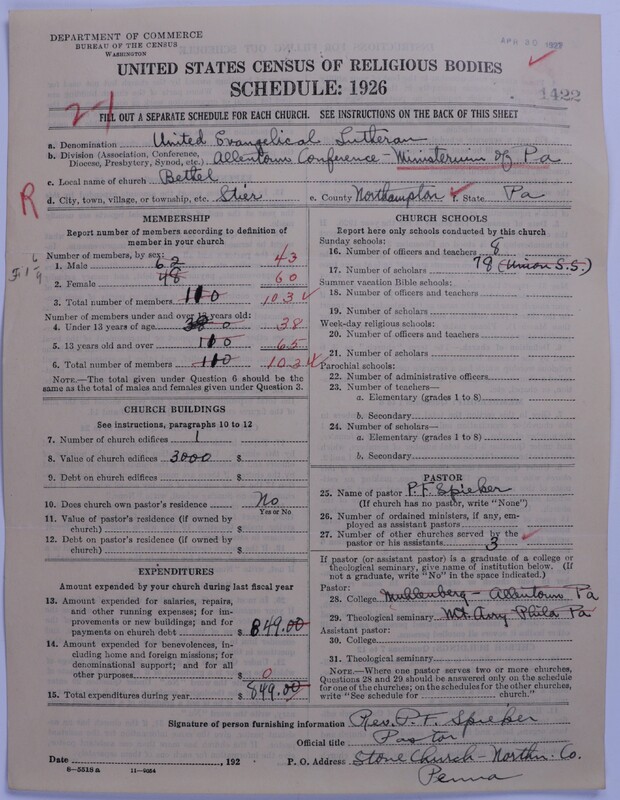 DEPARTMENT OF COMMERCE
BUREAU OF THE CENSUS
WASHINGTON
APR 30 1927
UNITED STATES CENSUS OF RELIGIOUS BODIES
SCHEDULE: 1926
1422
21
FILL OUT A SEPARATE SCHEDULE FOR EACH CHURCH. SEE INSTRUCTIONS ON THE BACK OF THIS SHEET
a. Denomination United Evangelical Lutheran
b. Division (Association, Conference, Diocese, Presbytery, Synod, etc.) Allentown Conference - Ministerium of Pa
c. Local name of church Bethel
R
d. City, town, village, or township, etc. Stier e. County Northampton f. State Pa
MEMBERSHIP
Report number of members according to definition of
member in your church
Number of members, by sex:
1. Male 62 43
2. Female 48 60
3. Total number of members 110 103
Number of members under and over 13 years old:
4. Under 13 years of age 0 38
5. 13 years old and over 110 65
6. Total number of members 110 103
NOTE.—The total given under Question 6 should be
the same as the total of males and females given under Question 3.
CHURCH BUILDINGS
See instructions, paragraphs 10 to 12
7. Number of church edifices 1
8. Value of church edifices 3000 $
9. Debt on church edifices $
10. Does church own pastor's residence No
Yes or No
11. Value of pastor's residence (if owned by
church) $
12. Debt on pastor's residence (if owned by
church) $
EXPENDITURES
Amount expended by your church during last fiscal year
13. Amount expended for salaries, repairs,
and other running expenses; for im-
provements or new buildings; and for
payments on church debt $ 849.00
14. Amount expended for benevolences, in-
cluding home and foreign missions; for
denominational support; and for all
other purposes $ 0
15. Total expenditures during year $ 849.00
CHURCH SCHOOLS
Report here only schools conducted by this church
Sunday schools:
16. Number of officers and teachers 8
17. Number of scholars 78 (Union S.S.)
Summer vacation Bible schools:
18. Number of officers and teachers
19. Number of scholars
Week-day religious schools:
20. Number of officers and teachers
21. Number of scholars
Parochial schools:
22. Number of administrative officers
23. Number of teachers—
a. Elementary (grades 1 to 8)
b. Secondary
24. Number of scholars—
a. Elementary (grades 1 to 8)
b. Secondary
PASTOR
25. Name of pastor P.F. Spieker
(If church has no pastor, write "None")
26. Number of ordained ministers, if any, em-
ployed as assistant pastors
27. Number of other churches served by the
pastor or his assistants 3
If pastor (or assistant pastor) is a graduate of a college or
theological seminary, give name of institution below. (If
not a graduate, write "No" in the space indicated.)
Pastor:
28. College Muhlenberg - Allentown Pa
29. Theological seminary Mt. Airy Phila Pa
Assistant pastor:
30. College
31. Theological seminary
NOTE.—Where one pastor serves two or more churches,
Questions 28 and 29 should be answered only on the schedule
for one of the churches; on the schedules for the other churches,
write "See schedule for church."
Signature of person furnishing information Rev. P.F. Spieker
Official title Pastor
Date , 192 P. O. Address Stone Church - Northn. Co.
Penna
8—5518 a 11—9054